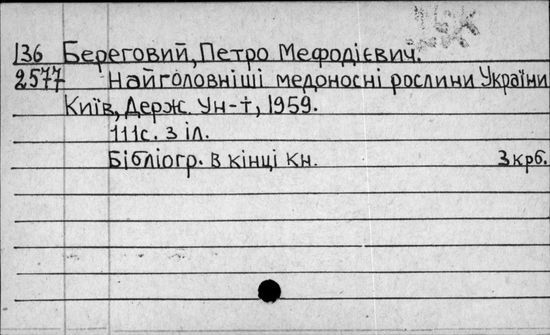 136 Береговий, Петро Мефодієвич.
2577 Найголовніші медоносні рослини України
Київ, Держ. Ун-т, 1959.
111с. з іл.
Бібліогр. в кінці кн. 3 крб.